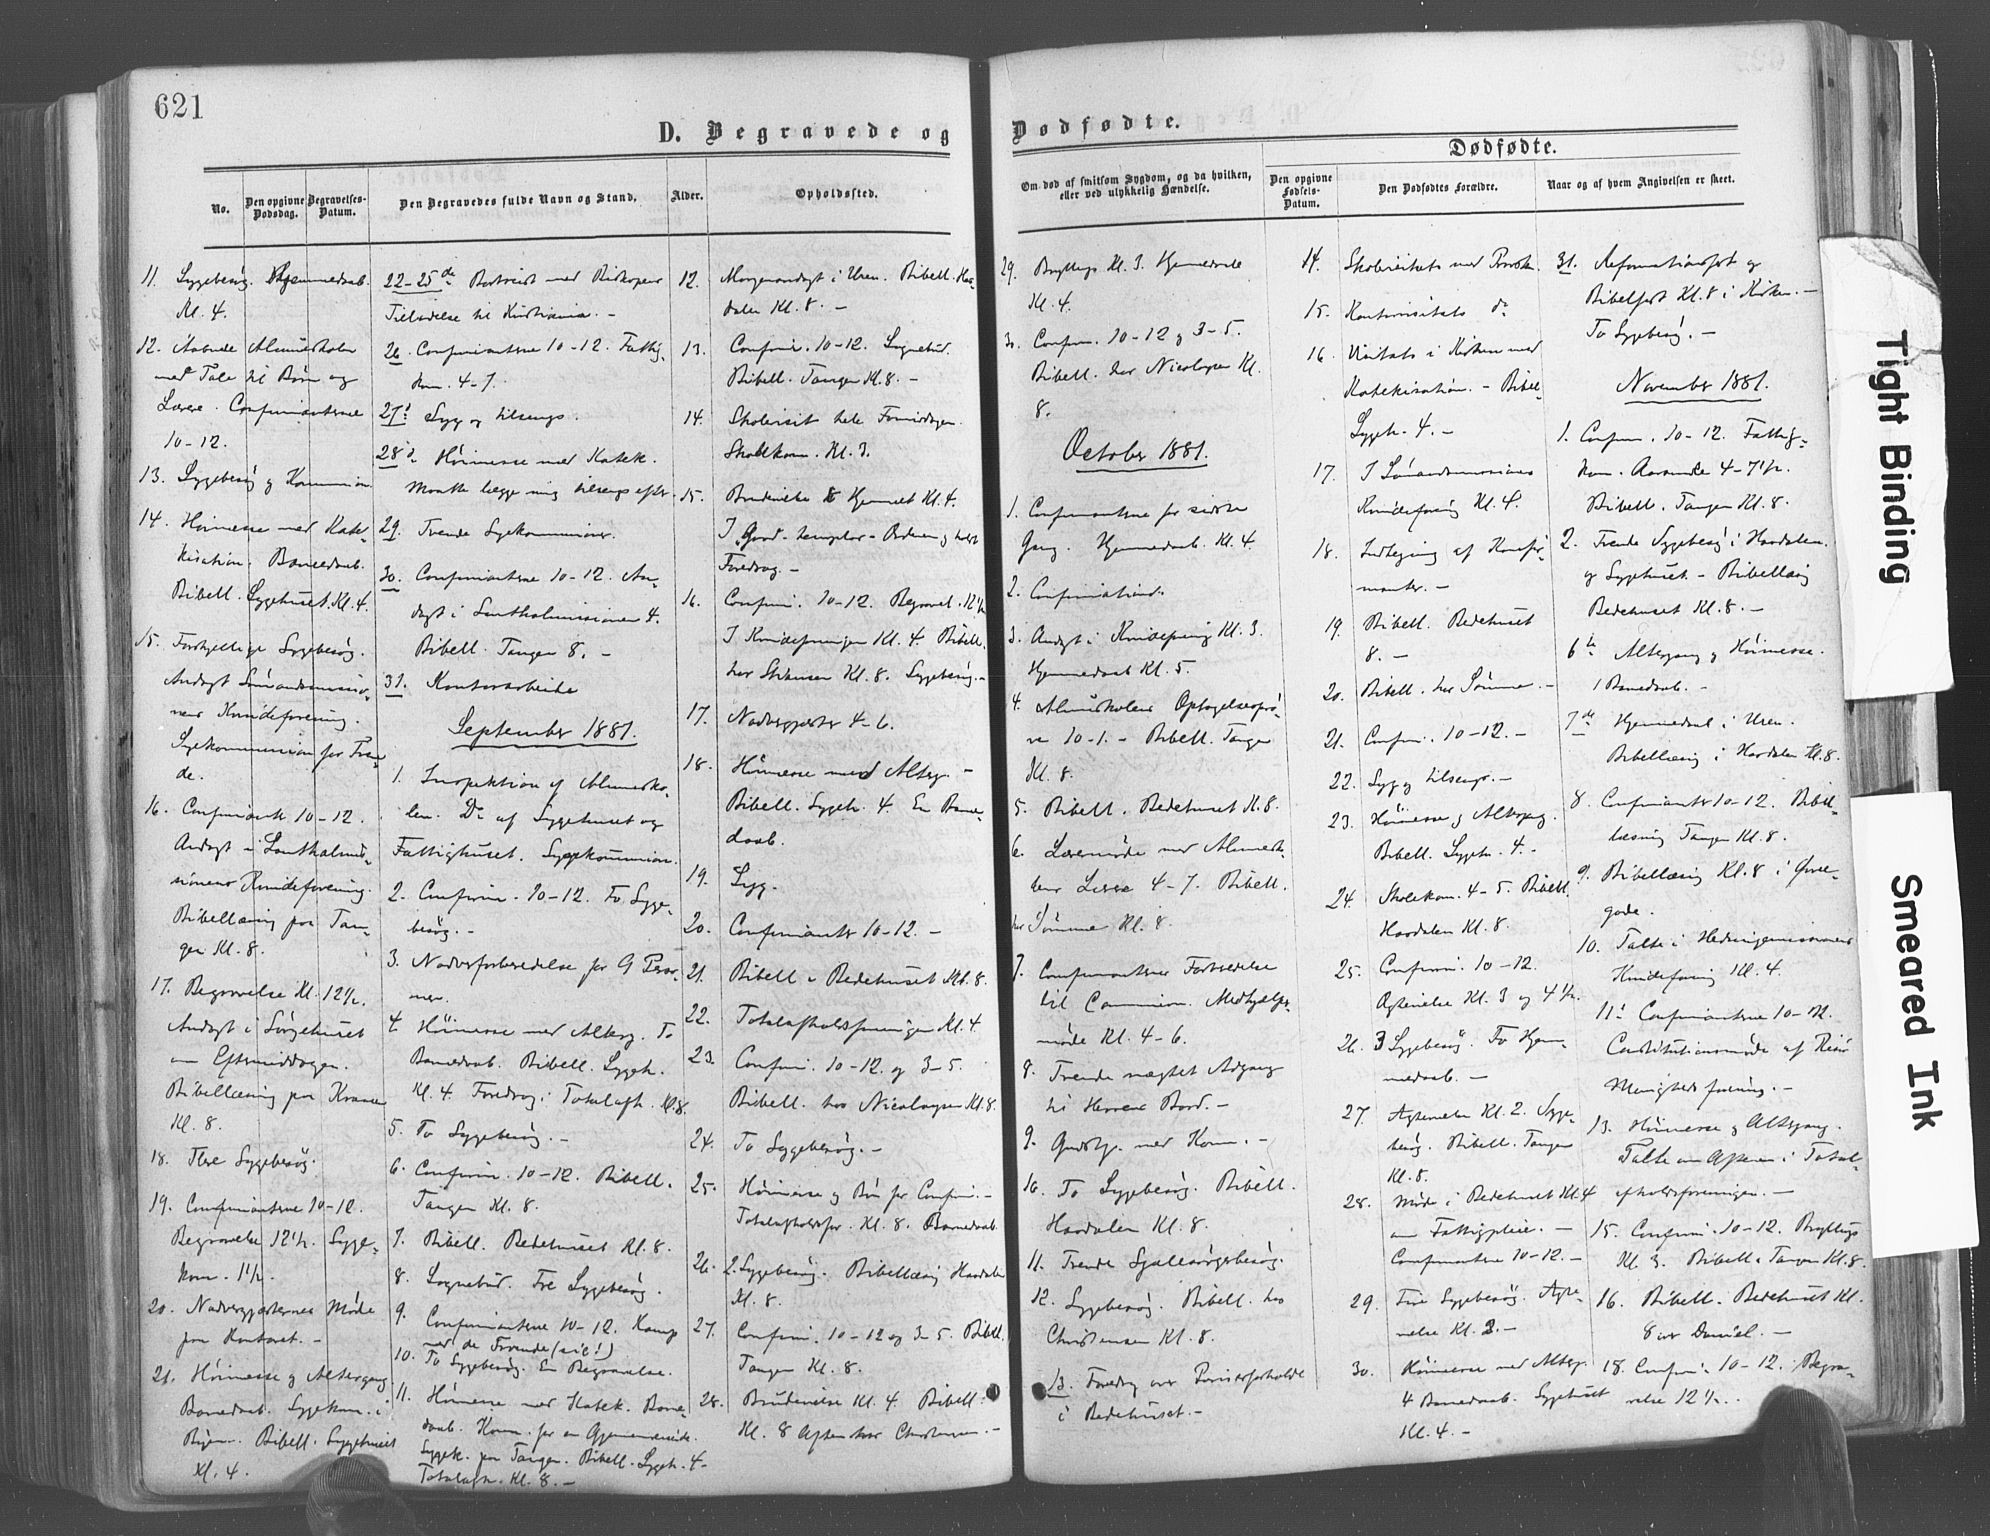 621
D. Begravede og Dødfødte.
No.
Den opgivne Dødsdag.
Begravelses-Datum.
Den Begravedes fulde Navn og Stand.
Alder.
Opholdssted.
Om død af smitsom Sygdom, og da hvilken, eller ved ulykkelig Hændelse.
Dødfødte.
Den opgivne Fødsels-Datum.
Den Dødfødtes Forældre.
Naar og af hvem Angivelsen er skeet.
11. Sygebesøg. Hjemmedaab.
Kl. 4.
12. Aabnede Almueskolen
med Tale til Børn og
Lærere. Confirmanterne
10-12.
13. Sygebesøg og Kommunion
14. Høimesse med Kate-
kisation. Barnedaab.
Bibell. Sygehuset. Kl. 4.
15. Forskjellige Sygebesøg.
Andagt Sømandsmissio-
nens Kvindeforening.
Sygekommunion for Tren-
de.
16. Confirmant. 10-12.
Andagt i Santhalmis-
sionens Kvindeforening.
Bibellæsning paa Tan-
gen Kl. 8.
17. Begravelse Kl. 12½.
Andagt i Sygehuset
om Eftermiddagen.
Bibellæsning paa
Kl. 8.
18. Flere Sygebesøg.
19. Confirmanterne 10-12.
Begravelse 12½. Syge-
kom. 1½.
20. Nadvergjæsternes Møde
paa Kontoret. -
21. Høimesse og Altergang
Barnedaab. Sygekom. i
Byen. Bibell. Sygehuset
Kl. 4.
22-25de Bortreist med Biskopens
Tilladelse til Kristiania. -
26. Confirmanterne 10-12. Fattig-
kom. 4-7.
27d Syg og tilsengs.
28d Høimesse med Katek.
Maatte lægge mig tilsengs efter.
29. Trende Sygekommunioner.
30. Confirmanterne 10-12. An-
dagt i Santhalmissionen 4.
Bibell. Tangen 8. -
31. Kontorarbeide
September 1881.
1. Inspektion af Almuesko-
len. Do af Sygehuset og
Fattighuset. Sygekommunion.
2. Confirm. 10-12. To Syge-
besøg. -
3. Nadverforberedelse for 9 Perso-
ner.
4. Høimesse med Alterg. To
Barnedaab. Bibell. Sygeh.
Kl. 4. Foredrag i Totalafh. Kl. 8.
5. To Sygebesøg. -
6. Confirm. 10-12. Bibell.
Tangen Kl. 8.
7. Bibell. Bedehuset Kl. 8.
8. Sognebud. Tre Sygebesøg.
9. Confirmanterne 10-12. Kamp
med de Troende (sic!)
10. To Sygebesøg. En Begravelse.
11. Høimesse med Katek. Barne-
daab. Kom. for en
Sygek. paa Tangen. Bibell. Sygeh. 4-
Totalafh. Kl. 8. -
12. Morgenandagt i Uren. Bibell. Haa-
dalen Kl. 8. -
13. Confirm. 10-12. Sognebud.
Bibell. Tangen Kl. 8. -
14. Skolevisit hele Formiddagen.
Skolekom. Kl. 3.
15. Brudevielse i Hjemmet Kl. 4.
I Good-templar-Ordenen g holdt
Foredrag. -
16. Confirm. 10-12. Begravel. 12½
I Kvindeforeningen Kl. 4. Bibell.
hos Kl. 8. Sygebesøg. -
17. Nadvergjæster 4-6.
18. Høimesse med Alterg. -
Bibell. Sygeh. 4. En Barne-
daab.
19. Syg.
20. Confirmanter 10-12. -
21. Bibell. i Bedehuset Kl. 8.
22. Totalafholdsforeningen Kl. 4
23. Confirm. 10-12 og 3-5.
Bibell. hos Nicolaysen Kl. 8.
24. To Sygebesøg. -
25. Høimesse og Bøn for Confirm. -
Totalafholdsfor. Kl. 8. Barnedaab
26. 2. Sygebesøg. Bibellæsning Haadalen
Kl. 8.
27. Confirm. 10-12 og 3-5. Bibell.
Tangen Kl. 8.
28. Brudevielse Kl. 4. Bibell.
Kl. 8 Aften hos Christensen. -
29. Bryllup Kl. 3. Hjemmedaab
Kl. 4.
30. Confirm. 10-12 og 3-5.
Bibell. hos Nicolaysen Kl.
8.
October 1881.
1. Confirmanterne for sidste
Gang. Hjemmedaab. Kl. 4.
2. Confirmation.
3. Andagt i Kvindeforening Kl. 3.
Hjemmedaab Kl. 5.
4. Almueskolens Optagelsesprø-
ve 10-1. - Bibell. Tangen
Kl. 8.
5. Bibell. Bedehuset Kl. 8.
6. Læremøde med Almuesko-
lens Lærere 4-7. Bibell.
hos Sømme Kl. 8.
7. Confirmanternes Forberedelse
til Communion. Medhjælper-
møde Kl. 4-6.
8. Trende nægtet Adgang
til Herrens Bord. -
9. Gudstj. med Kom. -
10. To Sygebesøg. Bibell.
Haadalen Kl. 8.
11. Trende Sjælesørgerbesøg.
12. Sygebesøg. Bibell. hos
Christensen Kl. 8.
13. Foredrag over
i Bedehuset. -
14. Skolevisitats med Provsten.
15. Kontorvisitats do
16. Visitats i Kirken med
Katekisation. - Bibell.
Sygeh. 4. -
17. I Sømandsmissionens
Kvindeforening Kl. 4.
18. Indtegning af Konfir-
manter. -
19. Bibell. Bedehuset
8. -
20. Bibell. hos Sømme. -
21. Confirm. 10-12. -
22. Syg og tilsengs. -
23. Høimesse og Altergang.
Bibell. Sygeh. 4. -
24. Skolekom. 4-5. Bibell.
Haadalen Kl. 8.
25. Confirm. 10-12.
Ægtevielse Kl. 3 og 4½.
26. 3 Sygebesøg. To Hjem-
medaab. -
27. Ægtevielse Kl. 2. Syge-
besøg. Bibell. Tangen
Kl. 8.
28. Møde i Bedehuset Kl. 4
om Fattigpleie. -
Confirmanterne 10-12. -
29. Fire Sygebesøg. Ægte-
vielse Kl. 2. -
30. Høimesse med Alterg.
4 Barnedaab. Sygehuset
Kl. 4. -
31. Reformationsfest og
Bibelfest Kl. 8 i Kirken. -
To Sygebesøg. -
November 1881.
1. Confirm. 10-12. Fattig-
kom. Aarsmøde 4-7½.
Bibell. Tangen Kl. 8.
2. Trende Sygebesøg i Haadalen
og Sygehuset. - Bibellæsning
Bedehuset Kl. 8. -
6te Altergang og Høimesse.
1 Barnedaab. -
7de Hjemmedaab i Uren.
Bibellæsning i Haadalen Kl. 8.
8. Confirmanter 10-12. Bibel-
læsning Tangen Kl. 8.
9. Bibellæsning Kl. 8 i Øvre-
gade.
10. Talte i Hedningemissionens
Kvindeforening Kl. 4.
11. Confirmanterne 10-12.
Constitutionsmøde af Risør
Menigheds forening. -
13. Høimesse og Altergang.
Talte om Aftenen i Total-
afholdsforeningen. -
15. Confirm. 10-12. Bryllup
Kl. 3. Bibell. i Tangen Kl. 8.
16. Bibell. Bedehuset Kl.
8 over Daniel. -
18. Confirm. 10-12. Begra-
velse 12½. -
Tight Binding
Smeared Ink